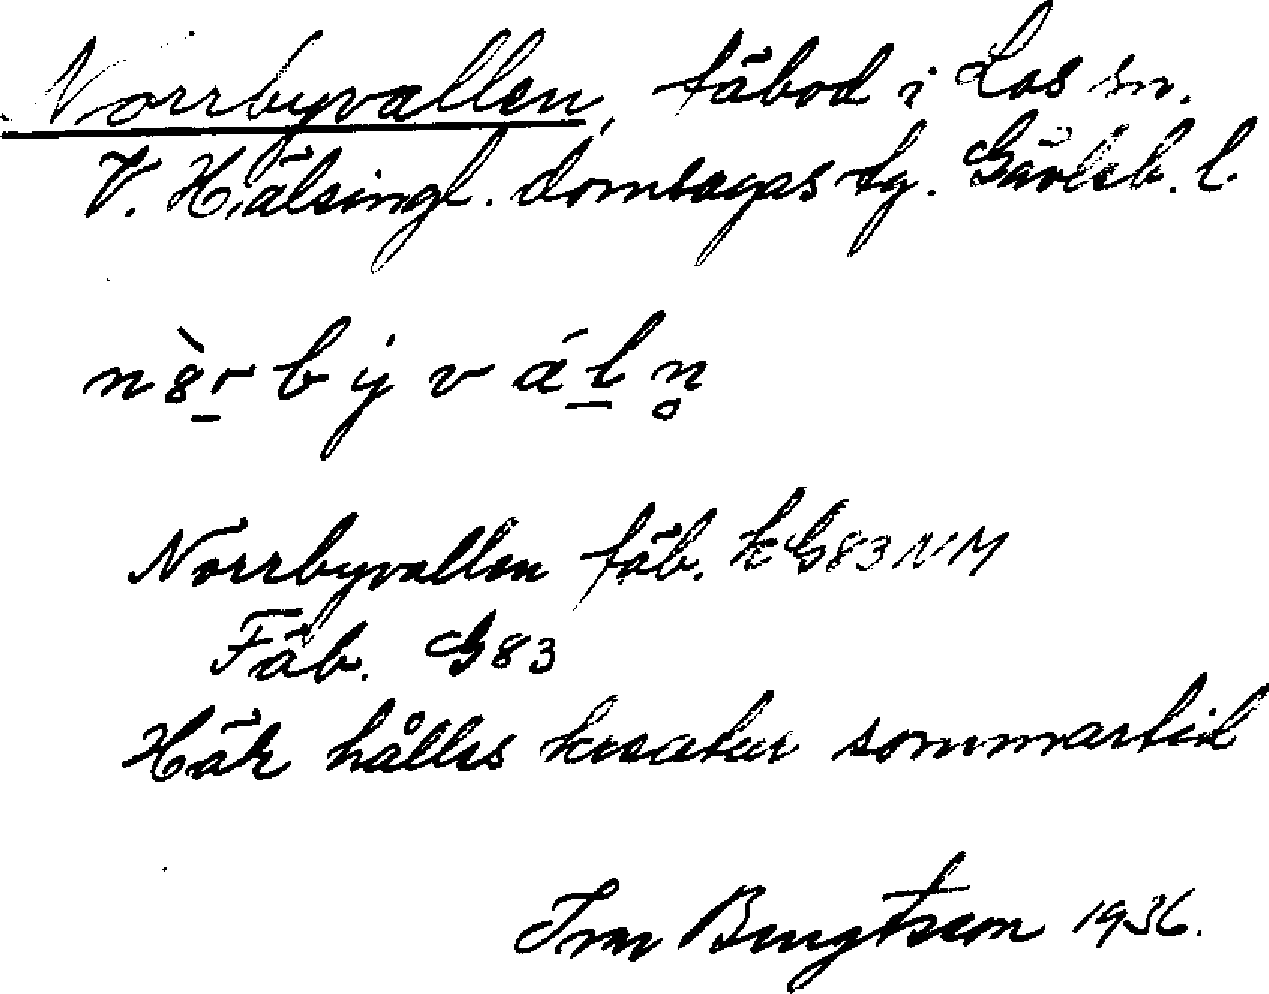 Norrbyvallen, fäbod i Los sn.
V. Hälsingl. domsagas tg. Gävleb. l.
n8̀r̲ b ẏ v á l̲ n̥
Norrbyvallen fäb. k G83 NM
Fäb. G83
Här hålles kreatur sommartid
Ivar Bengtsson 1936.